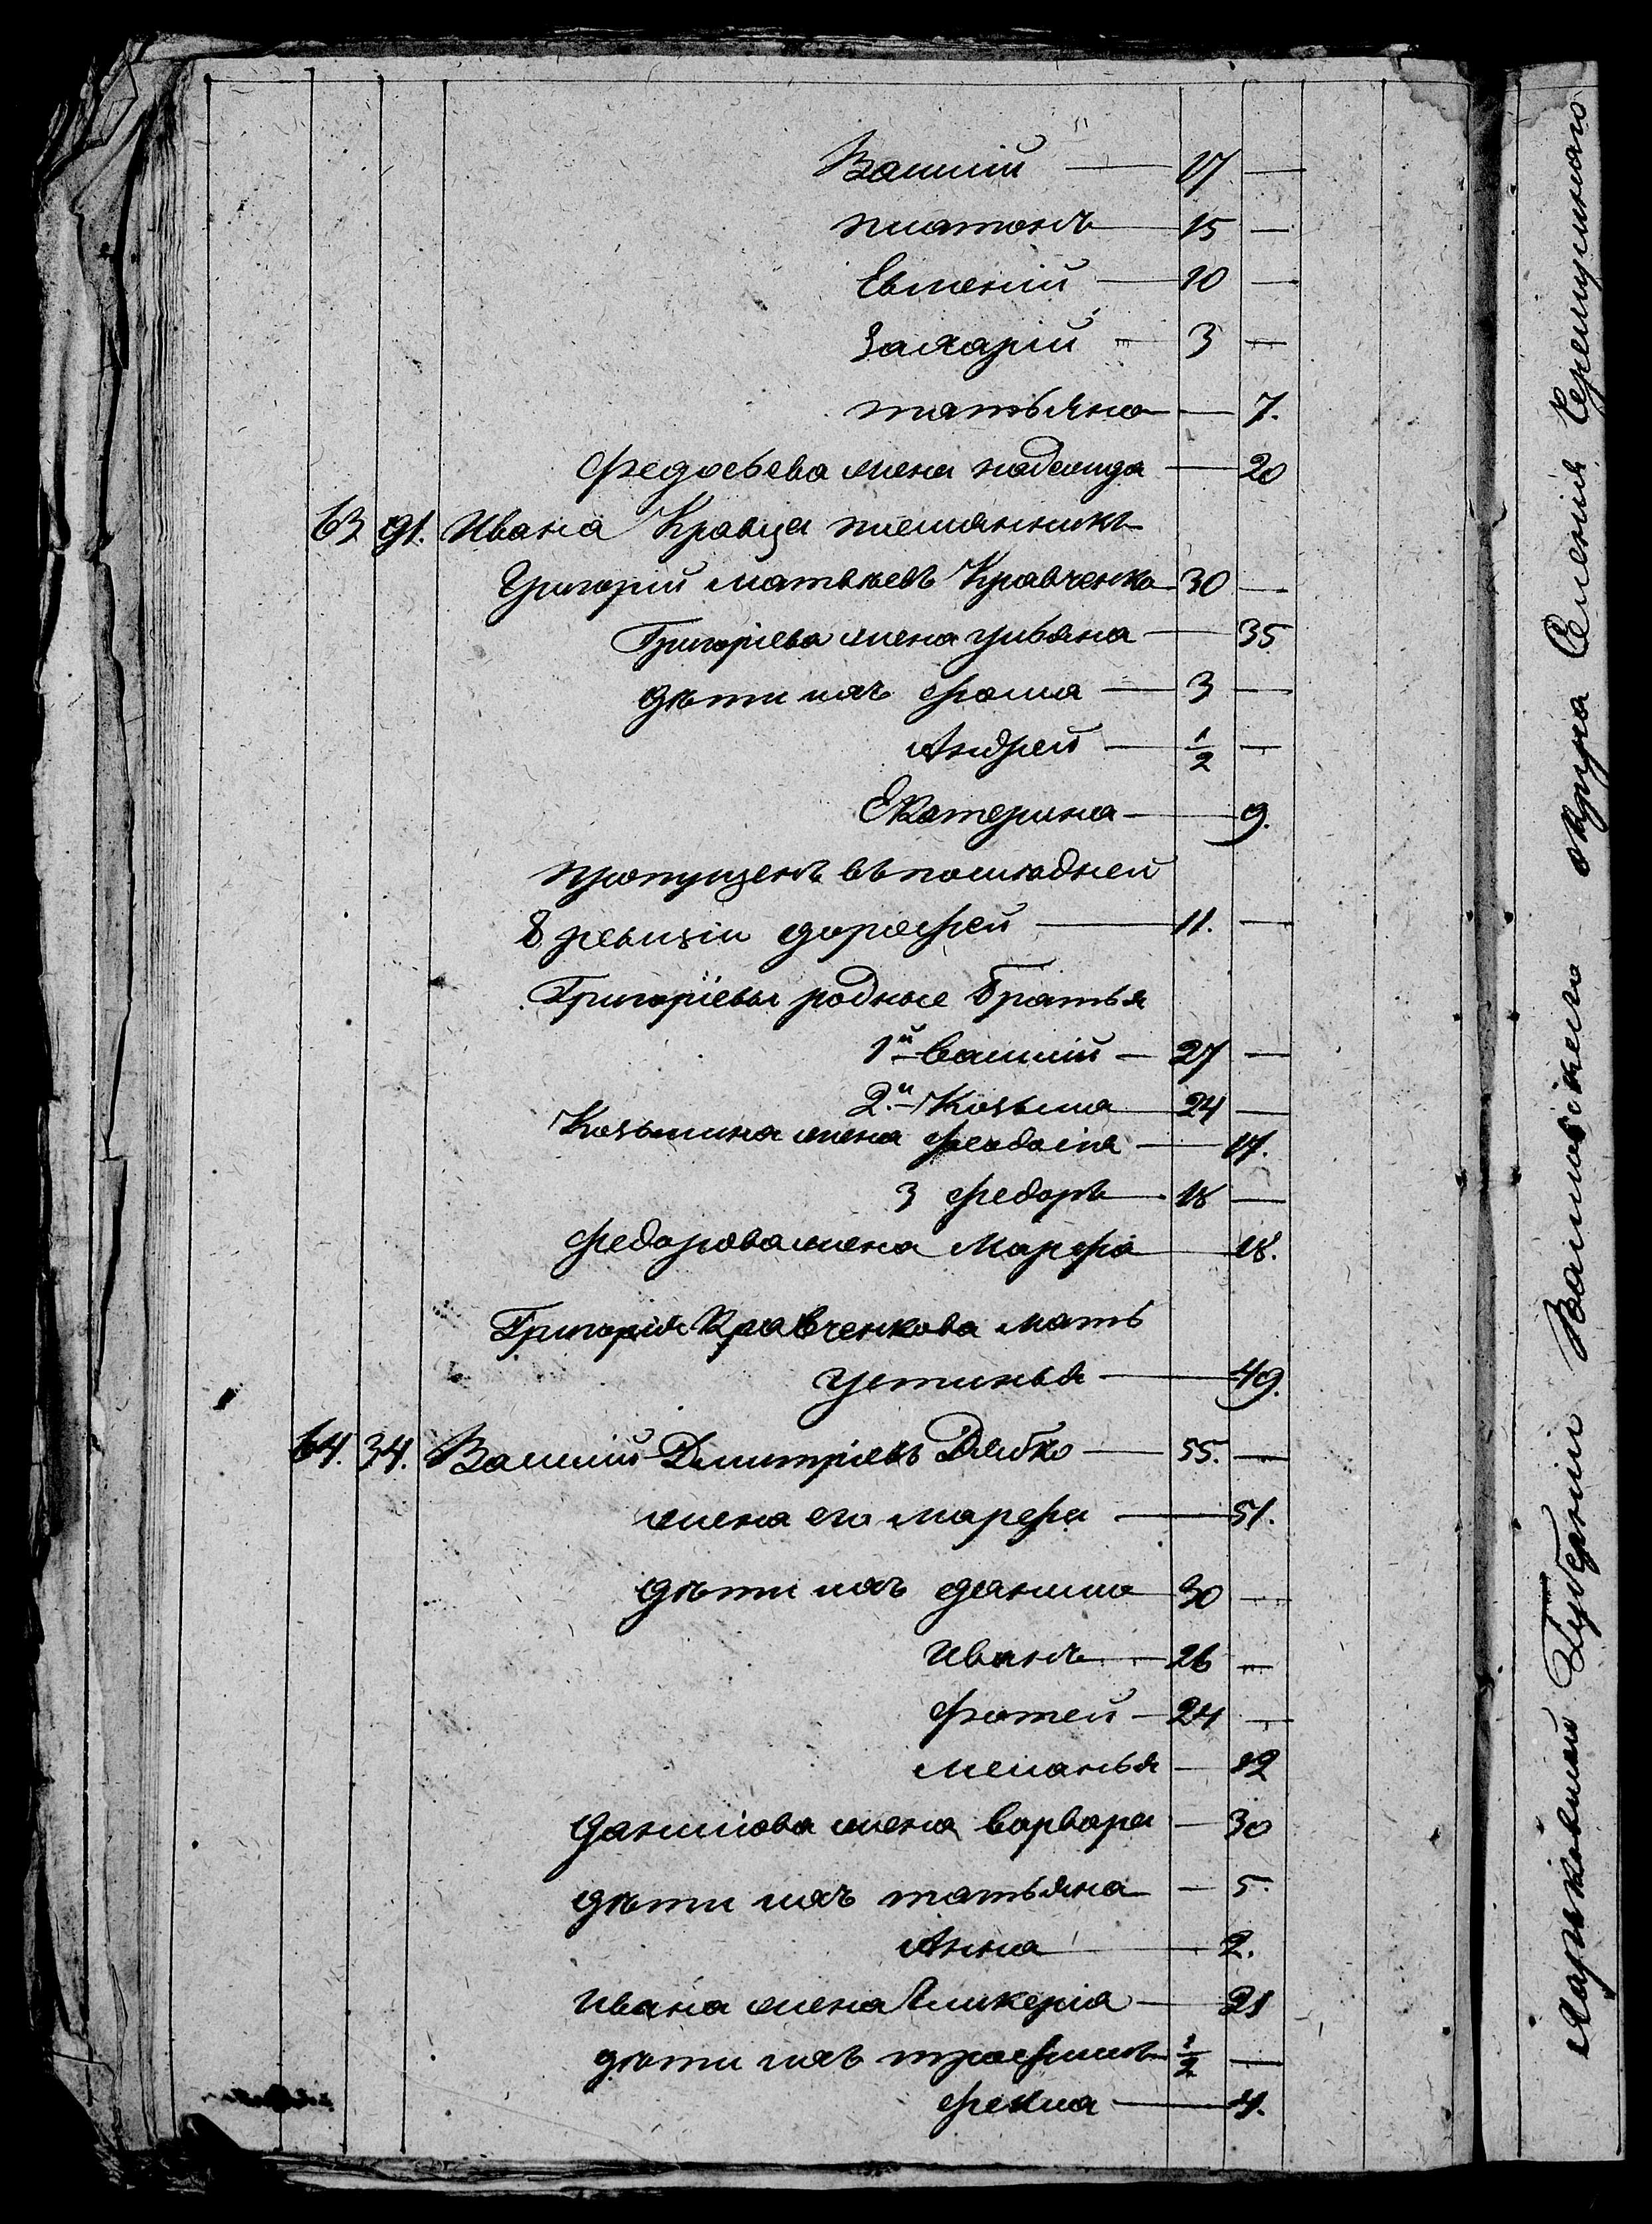 Василій — 17 —
платонъ — 15 —
Евменій — 10 —
Захарій — 3 —
татьяна — 7.
Федосѣева жена надежда — 20
63 91. Ивана Кравца племянникъ
Григорій матвѣевъ Кравченко 30 —
Григоріева жена ульяна — 35
дѣти ихъ фома — 3 —
Андрей — 1/2 —
Екатерина — 9.
пропущенъ въ послѣдней
8 ревизіи дорофей — 11. —
Григоріевы родные братья
1й василій — 27 —
2.й Козьма — 24 —
Козьмина жена феодосія — 17.
3 федоръ — 18 —
федорова жена Марфа — 18.
Григорія Кравченкова мать
устинья — 49.
64. 34. Василій Димитріевъ — 55. —
жена его марфа — 51.
дѣти ихъ данило 30 —
иванъ — 26 —
фотей — 24 —
меланья — 12
данилова жена варвара — 30
дѣти ихъ татьяна — 5.
Анна — 2.
ивана жена Гликерія — 21
дѣти ихъ трофимъ 1/2 —
фекла — 4.
Харьковской Губерніи Валковскаго округа Селенія Черемушнаго